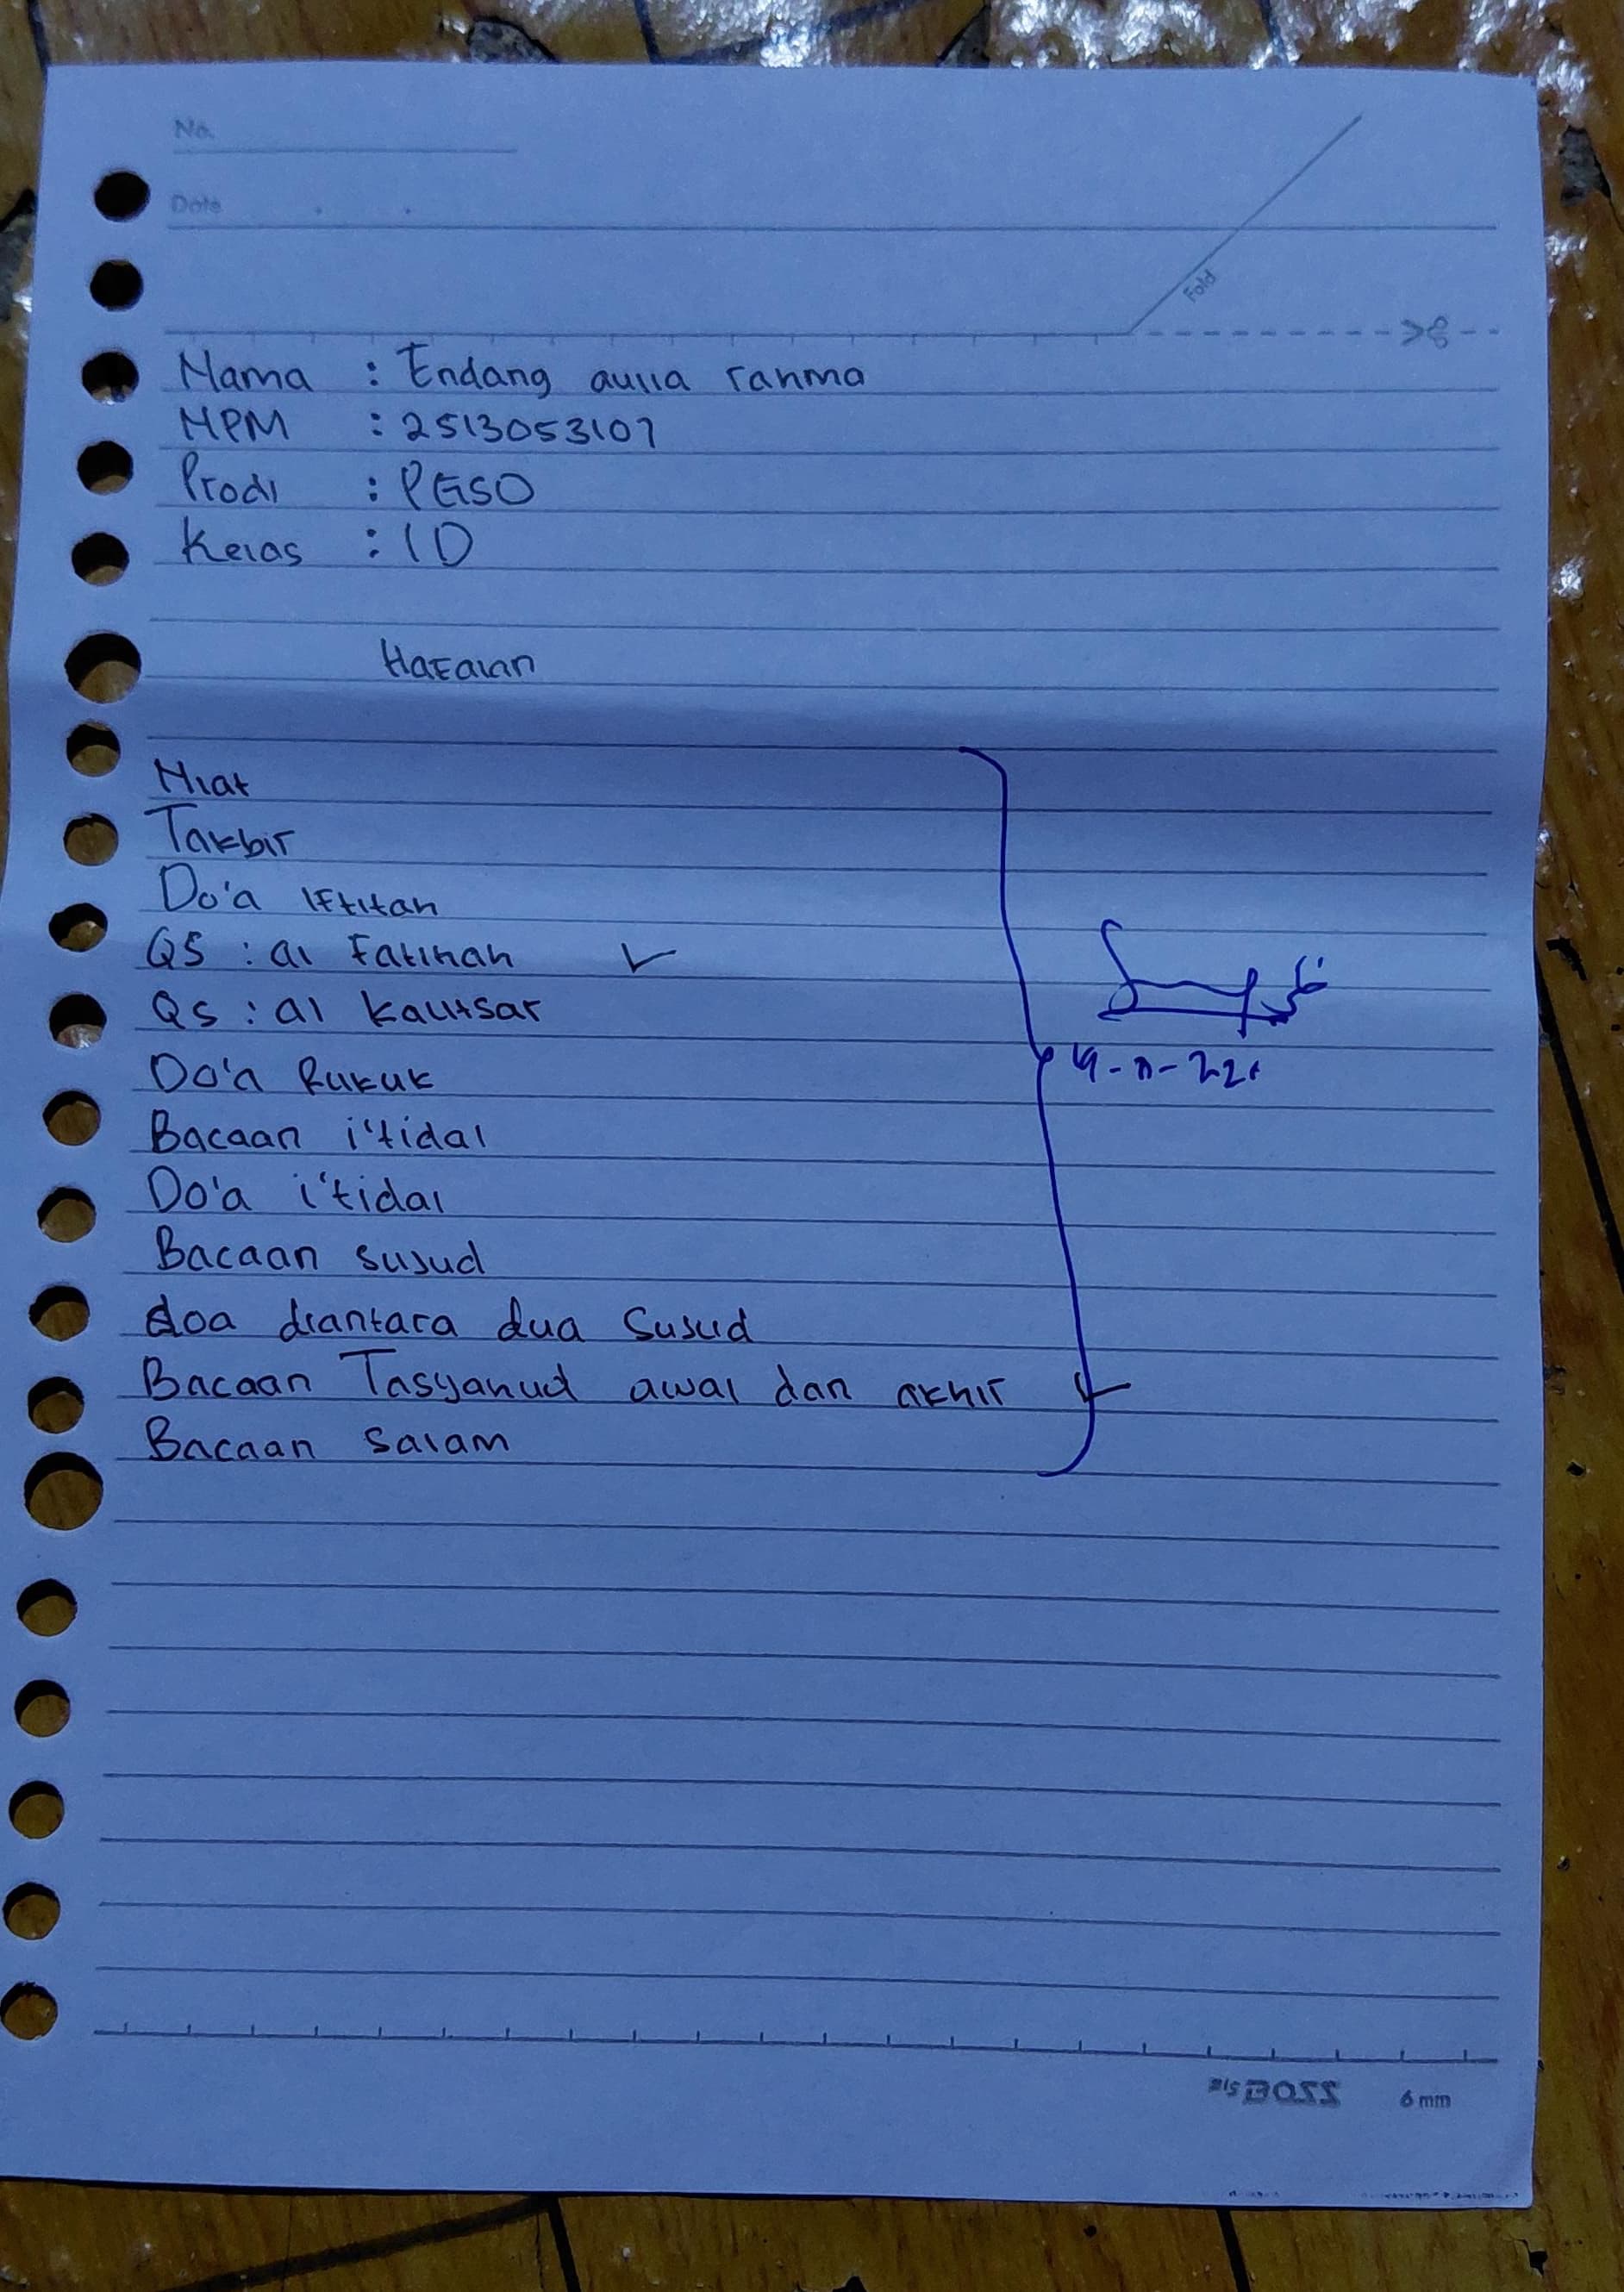 No.
Date
Fold
Nama : Endang aulia rahma
NPM : 2513053107
Prodi : PGSD
Kelas : 1D
Hafalan
Niat
Takbir
Do'a Iftitah
QS : al Fatihah ✓
Qs : al kautsar
Do'a Rukuk
Bacaan i'tidal
Do'a i'tidal
Bacaan sujud
doa diantara dua Sujud
Bacaan Tasyahud awal dan akhir ✓
Bacaan salam
BOSS 6 mm